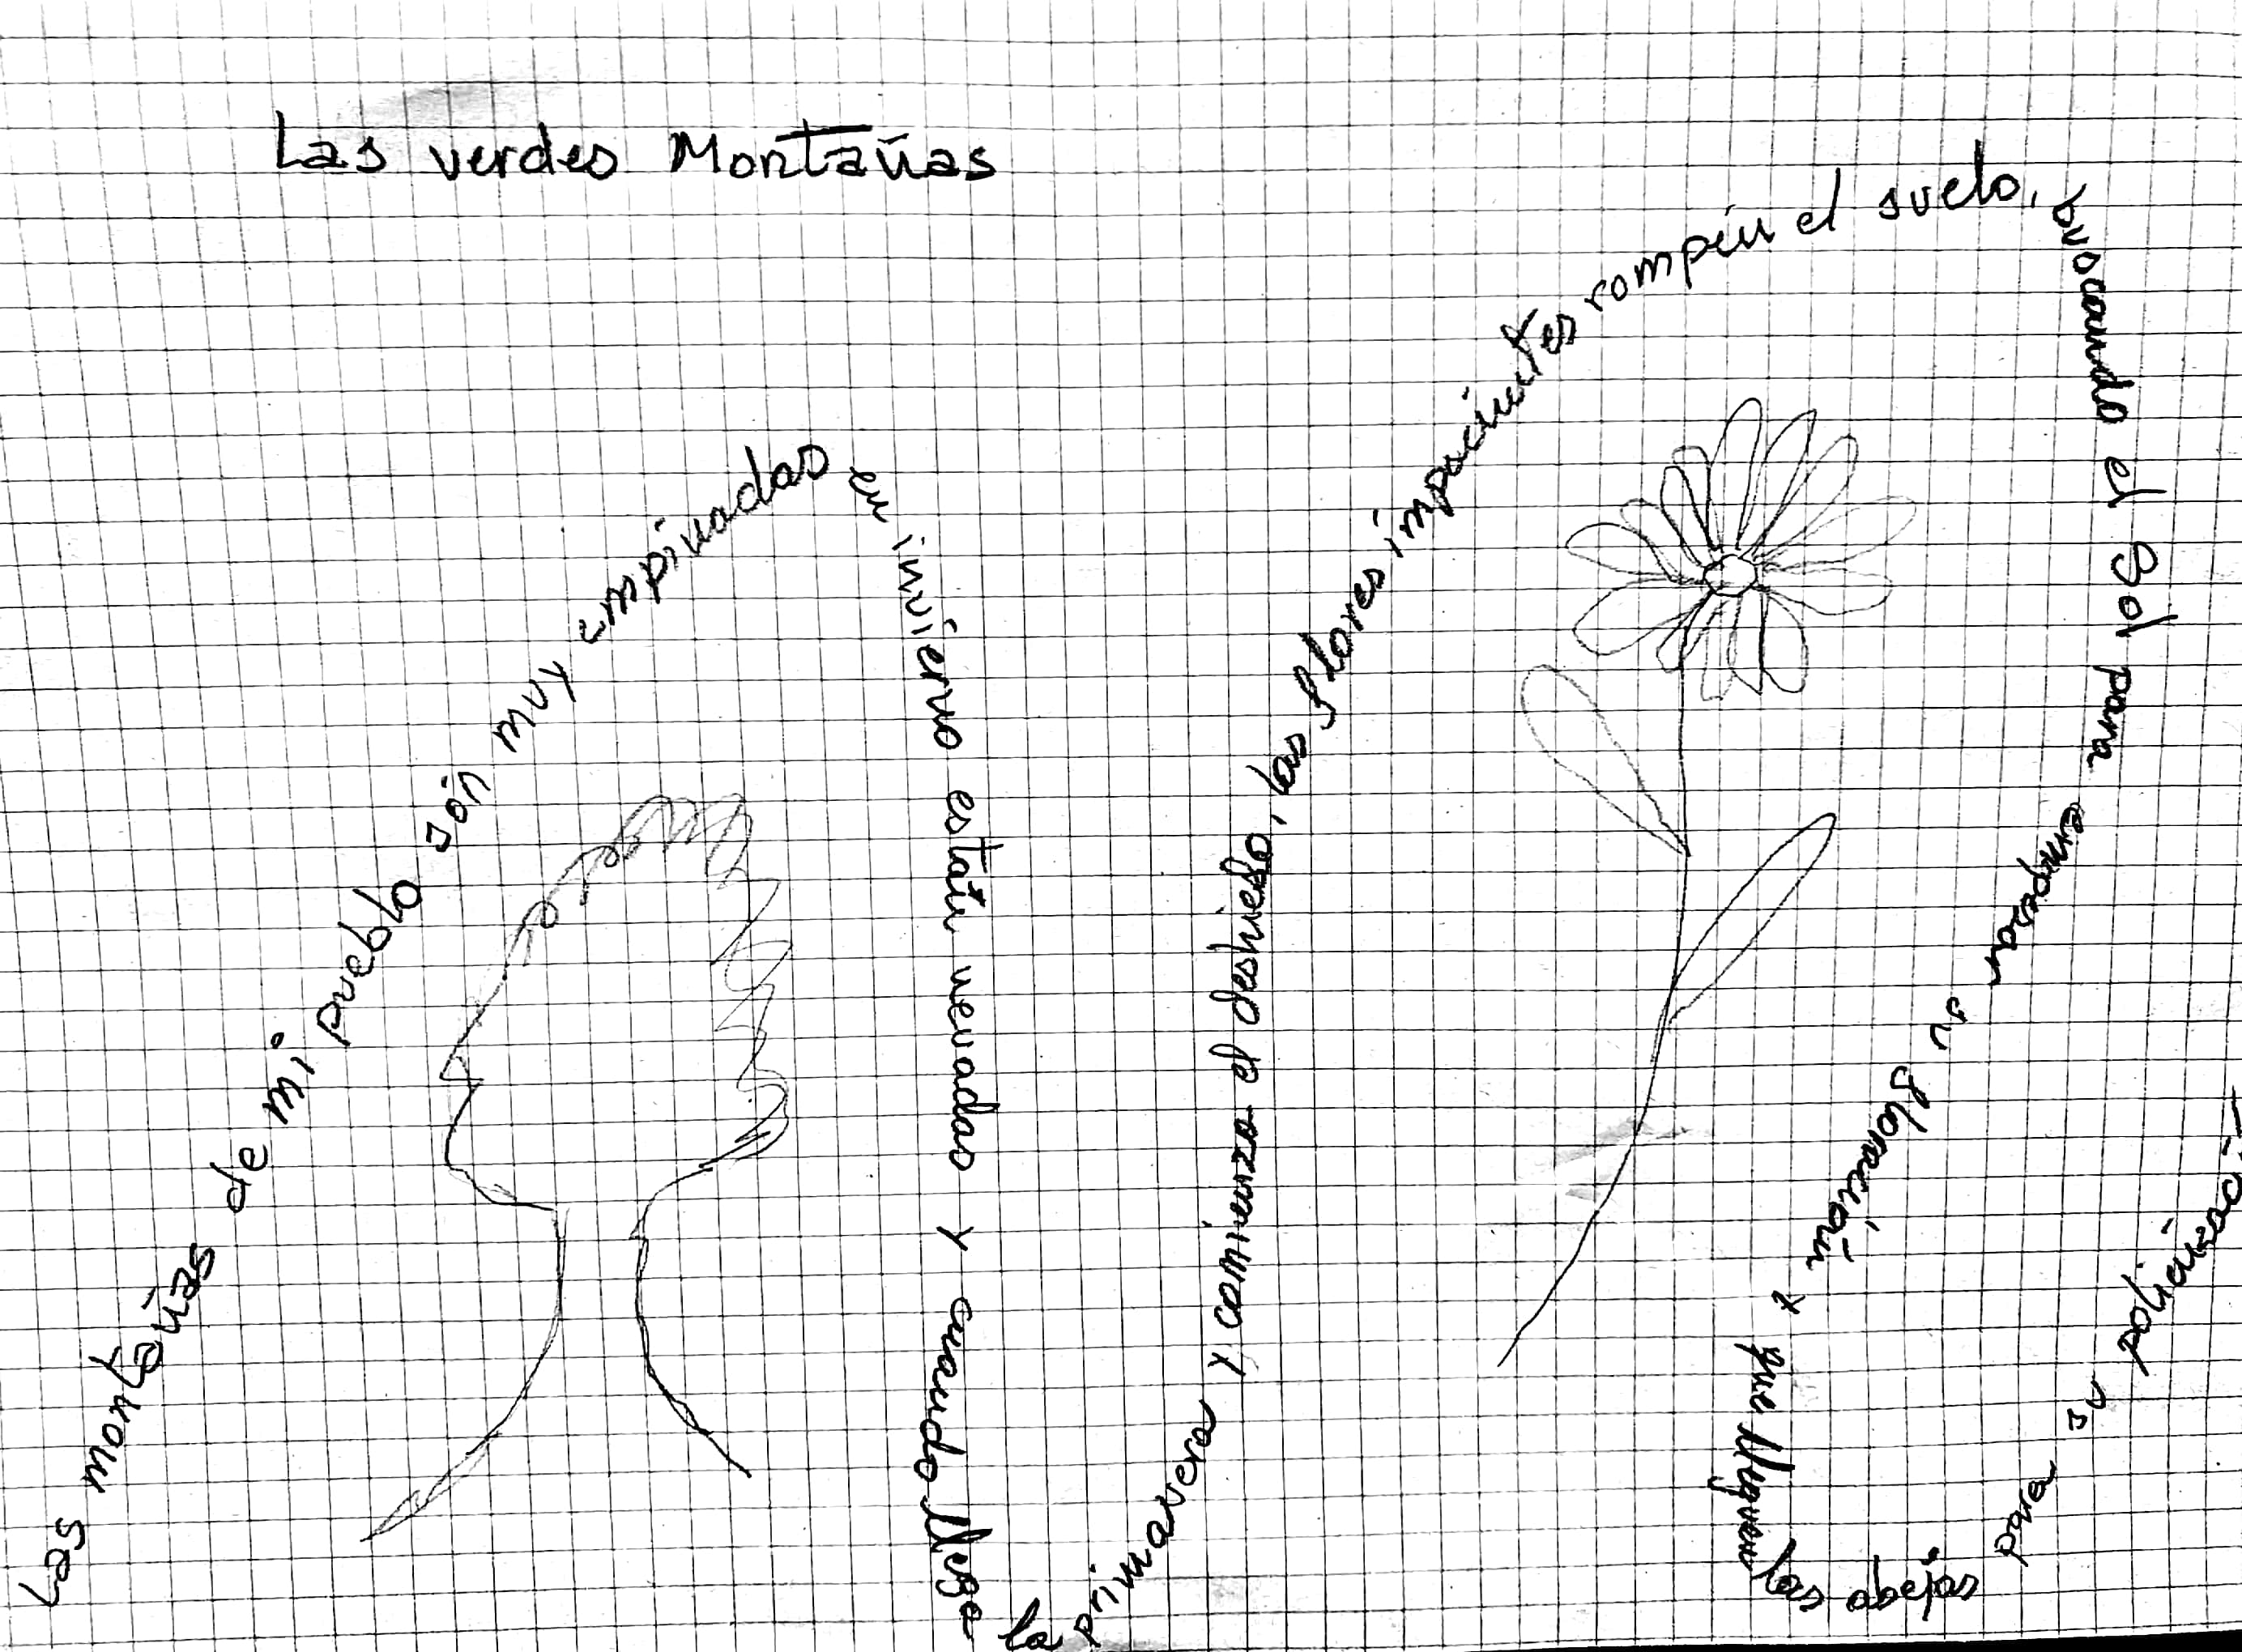 Las verdes Montañas
Las montañas de mi pueblo són muy empinadas
en invierno están nevadas y cuando llega
la primavera y comienza el deshielo, las flores impacientes rompen el suelo,
buscando el Sol para
empesar su floración y
que lleguen las abejas para su polinización